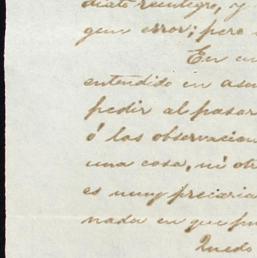 diato reintegro, y
gun error; pero
En cu
entendido en asun
pedir al pasar
ó las observacion
una cosa, ni otr
es muy preciaria
nada en que fun
Quedo